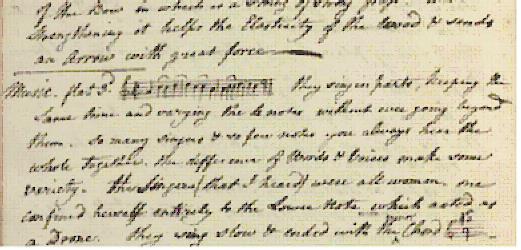 of the Bow in which is a String of strong
Strengthening it helps the Elasticity of the wood & sends
an Arrow with great force
Music. flat 3d they sing in parts, keeping the
Same time and varying the 4 notes without ever going beyond
them. So many singers & so few notes you always hear the
whole together. the difference of Words & Voices make some
variety. the Singers (that I heard) were all women. one
confined herself entirely to the Lower Note which acted as
a Drone. they sing slow & ended with the Chord